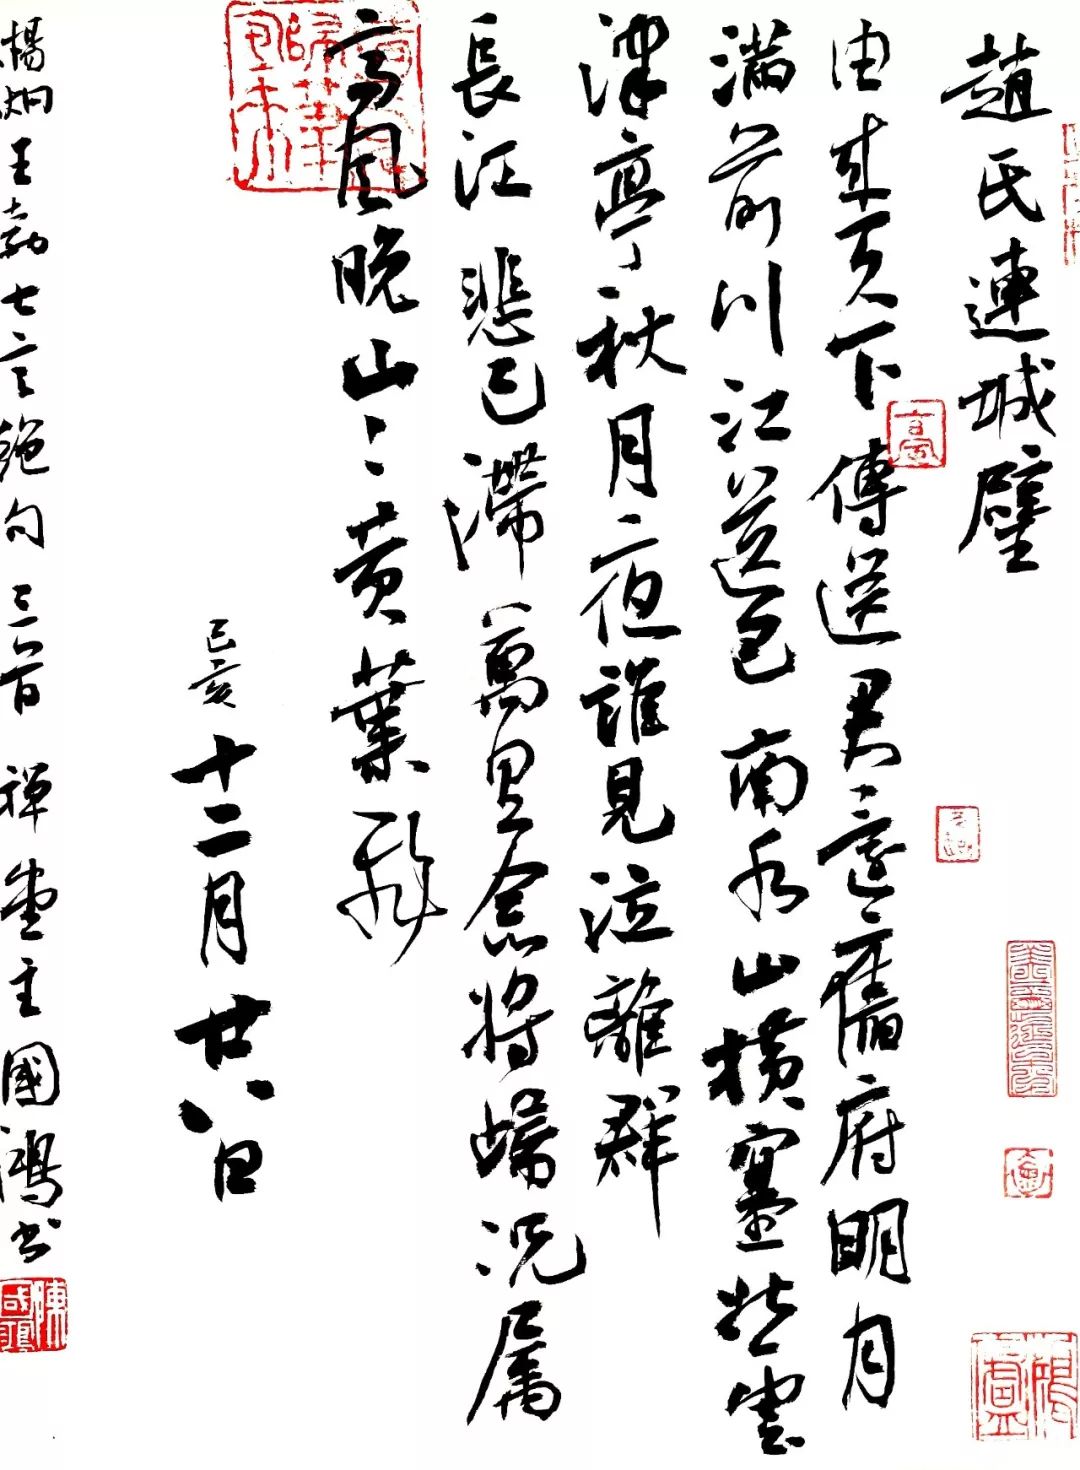 趙氏連城璧
由来天下傳送君還舊府明月
滿前川江送巴南水山橫塞北雲
津亭秋月夜誰見泣離群
長江悲已滯萬里念將歸況属
高風晚山〻黄葉飛
己亥十二月廿八日
楊炯王勃七言絕句三首 禪堂主國鴻书
陳國鴻